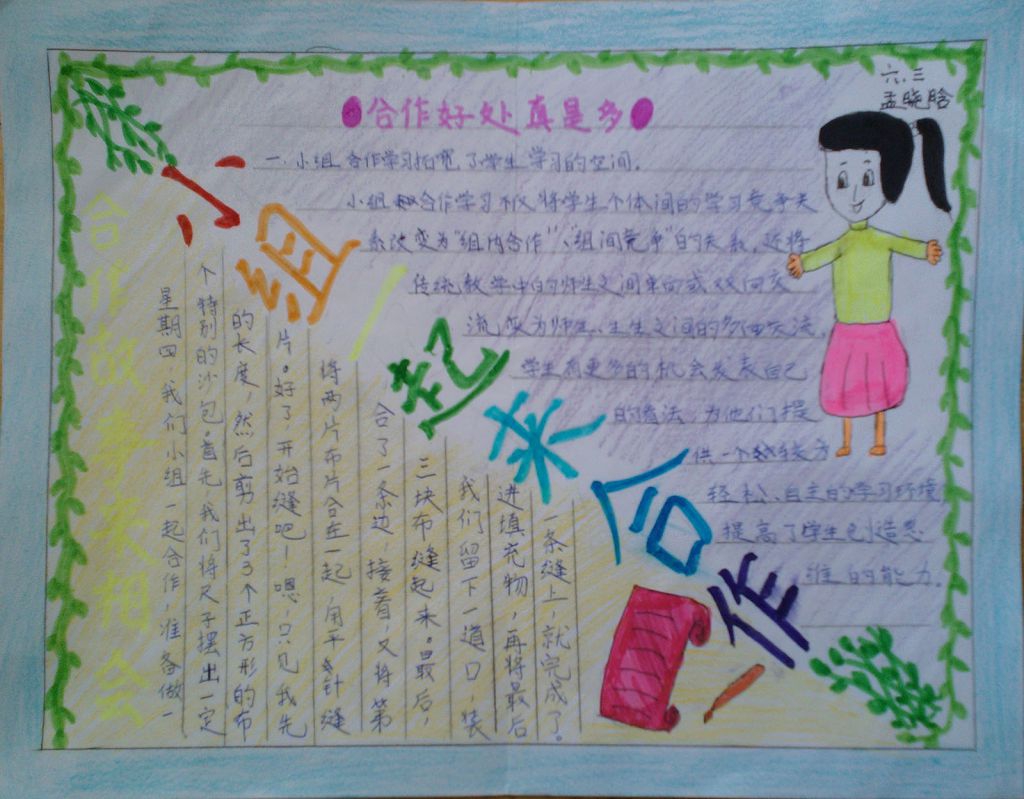 六.三
孟晓晗
合作好处真是多
小组一起来合作
一.小组合作学习拓宽了学生学习的空间。
小组合作学习不仅将学生个体间的学习竞争关
系改变为"组内合作"、"组间竞争"的关系，还将
传统教学中的师生之间单向或双向交
流改为师生、生生之间的多向交流，
学生有更多的机会发表自己
的看法，为他们提
供一个较为
轻松、自主的学习环境
提高了学生创造思
维的能力。
合作故事来相会
星期四，我们小组一起合作，准备做一
个特别的沙包。首先，我们将尺子摆出一定
的长度，然后剪出了3个正方形的布
片。好了，开始缝吧！嗯，只见我先
将两片布片合在一起，用平针缝
合了一条边，接着，又将第
三块布缝起来。最后，
我们留下一道口，装
进填充物，再将最后
一条缝上，就完成了。